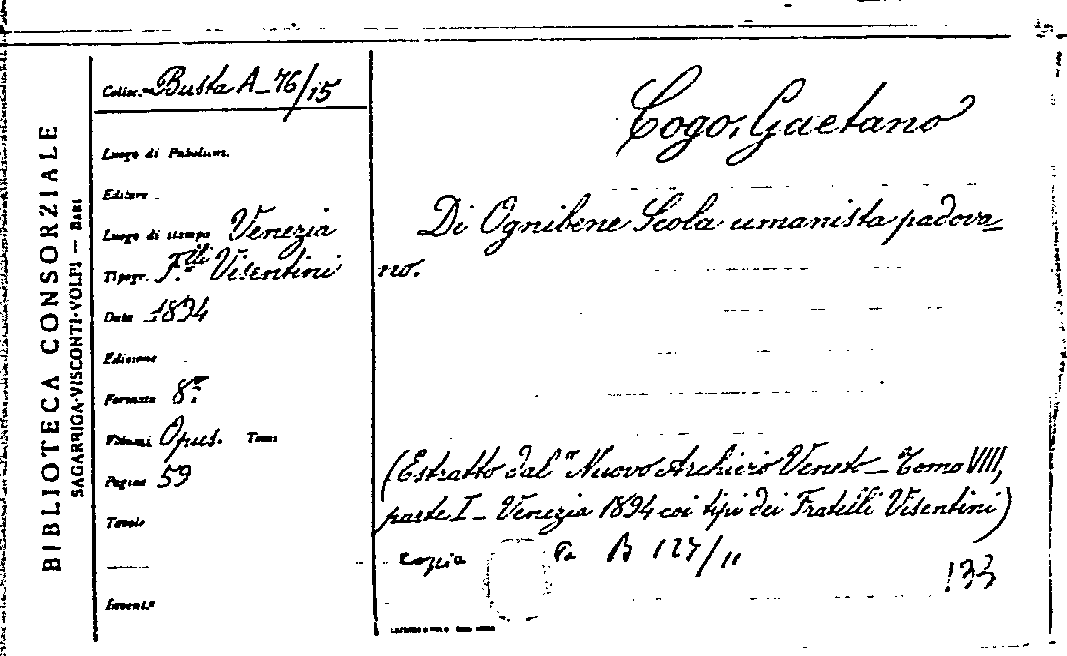 BIBLIOTECA CONSORZIALE
SAGARRIGA-VISCONTI-VOLPI — BARI
Colloc.ne Busta A-76/15
Luogo di Pubblicaz.
Editore
Luogo di stampa Venezia
Tipogr. F.lli Visentini
Data 1894
Edizione
Formato 8º
Volumi Opus. Tomi
Pagine 59
Tavole
Invent.º
Cogo, Gaetano
Di Ognibene Scola umanista padova=
no.
(Estratto dal "Nuovo Archivio Veneto - Tomo VIII,
parte I - Venezia 1894 coi tipi dei Fratelli Visentini)
copia B 127/11
133